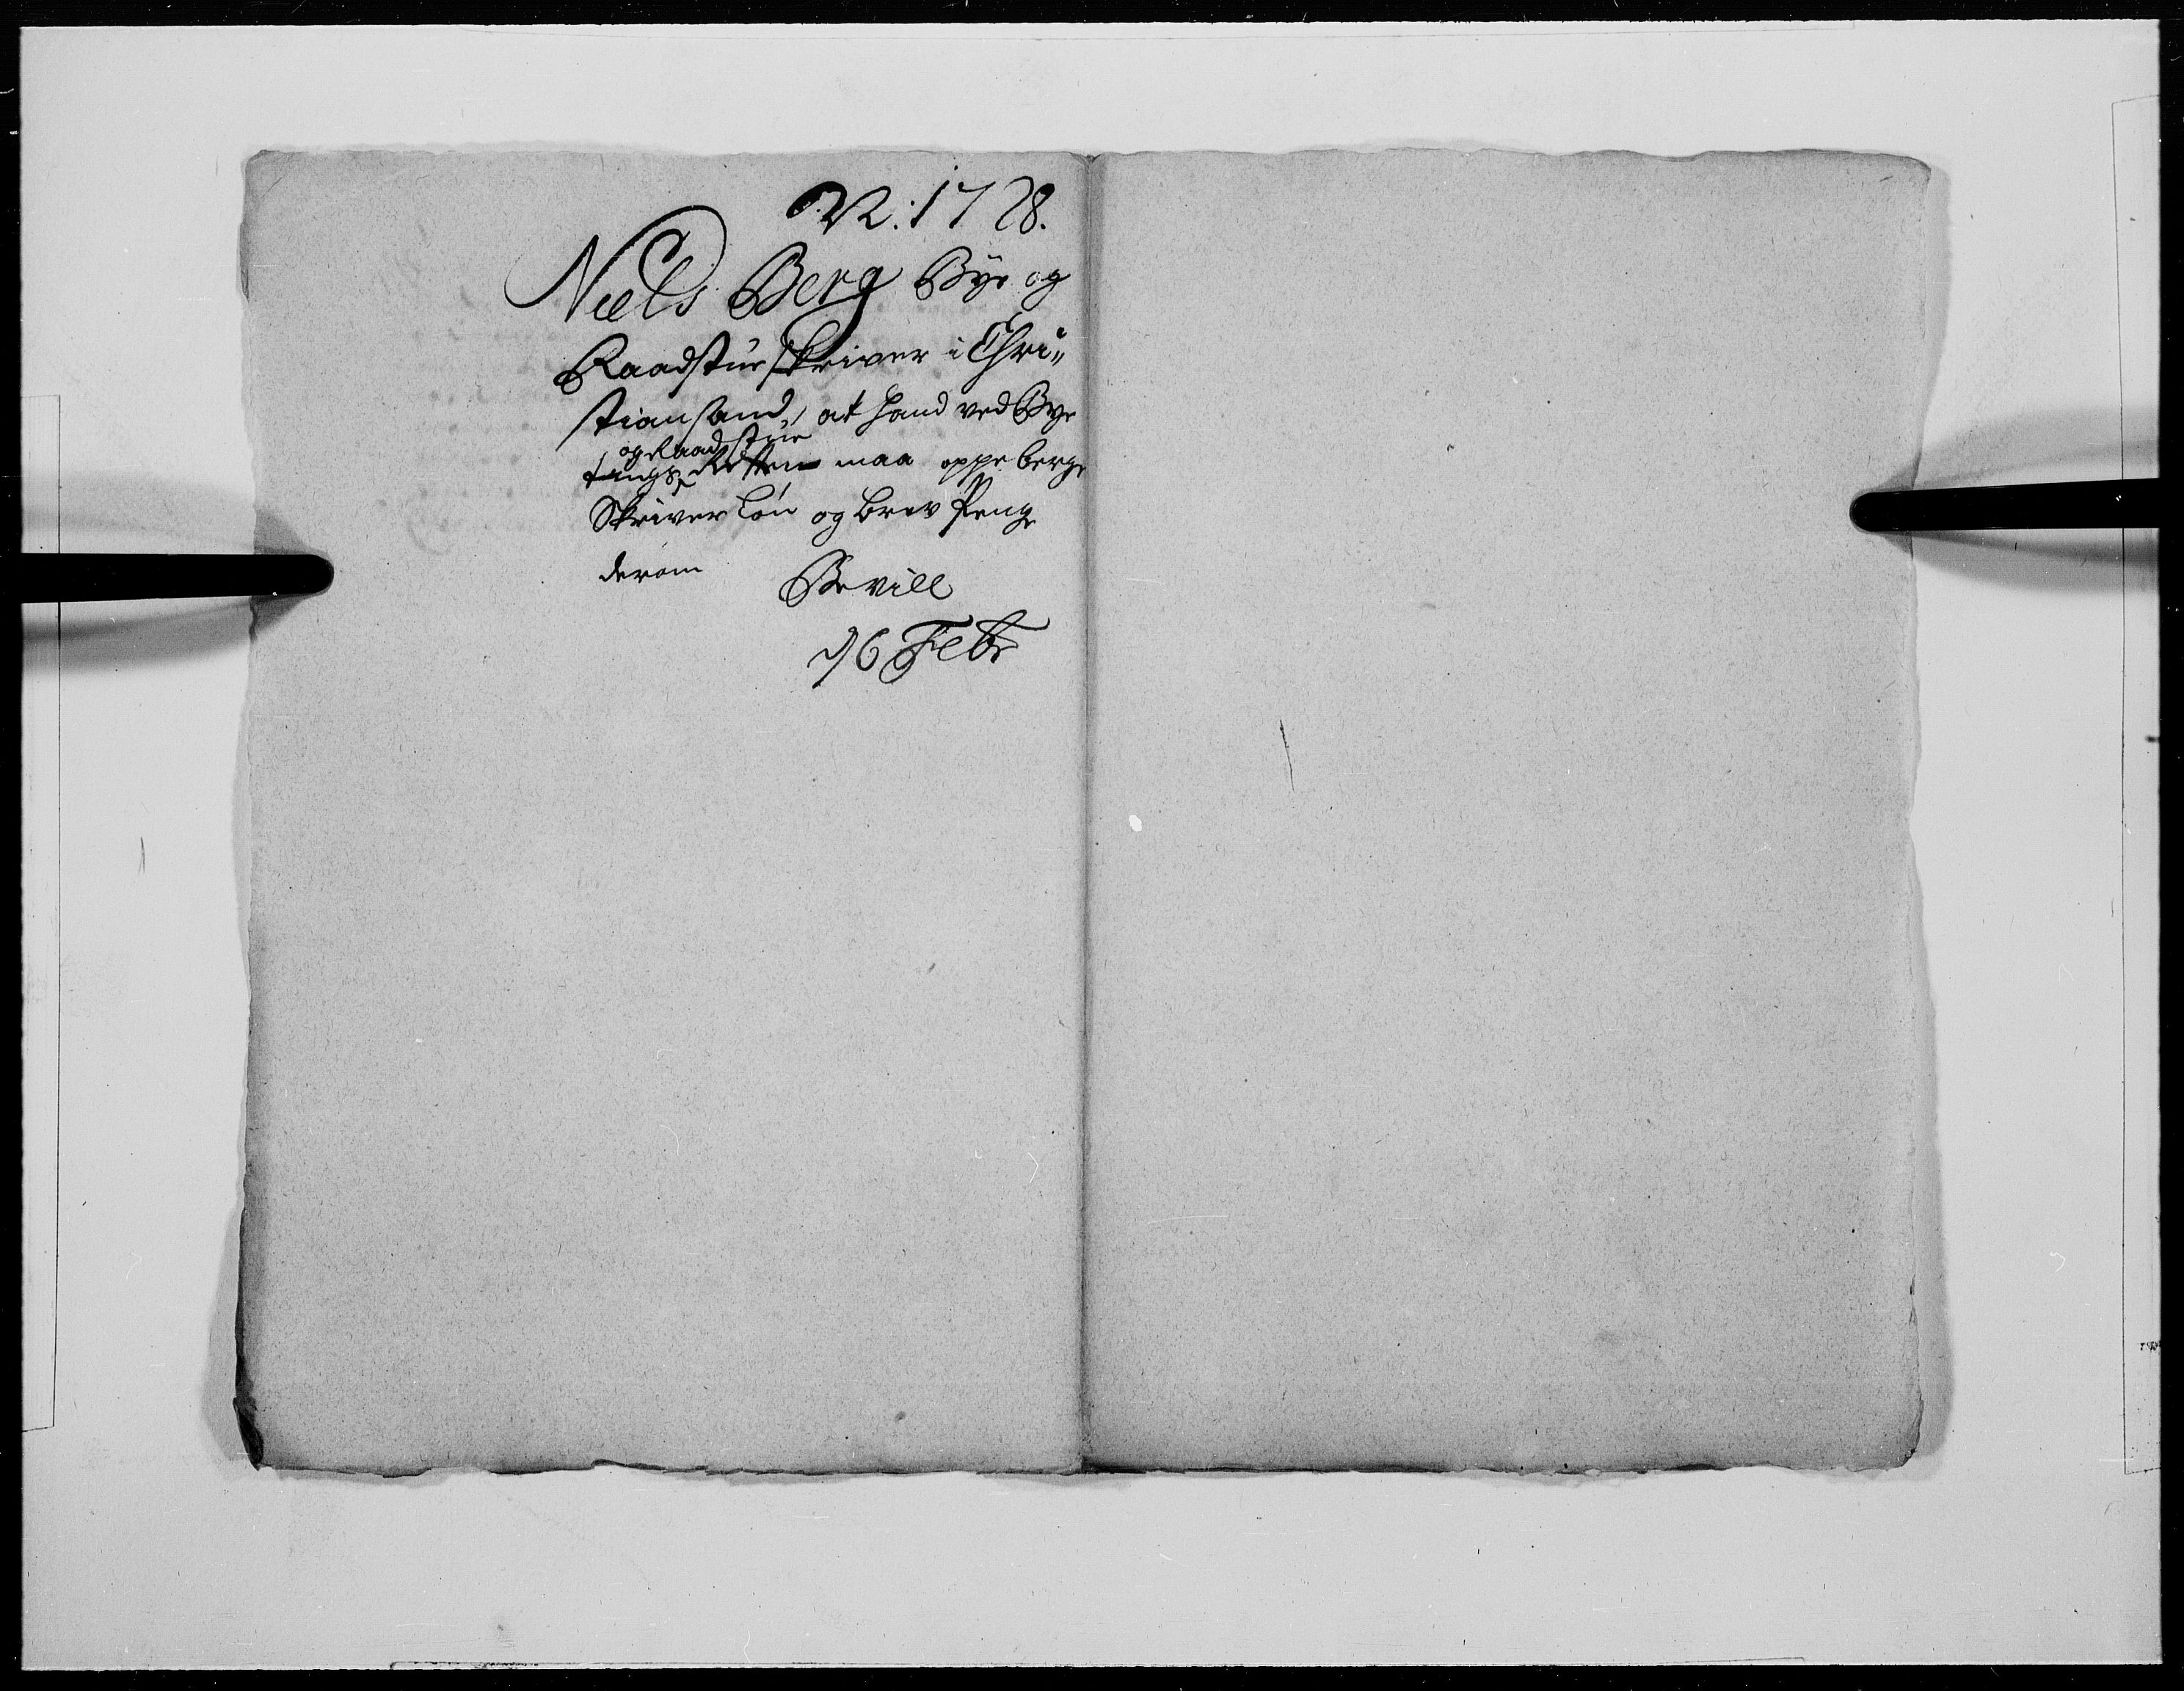 N: 1728.
Niels Berg Bye og
Raadstue skriver i Chri„
stiansand, at hand ved Bye
og Raadstue
tings Retten maa oppeberge
Skriver løn og brev Penge
derom Bevill
16 Febr